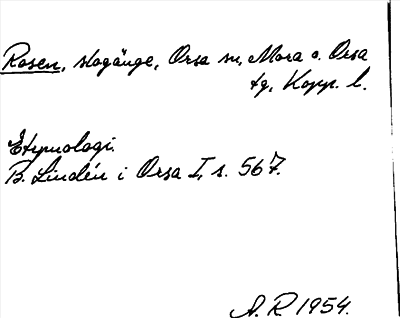 Rosen, skogänge, Orsa sn, Mora o. Orsa
tg, Kopp. l.
Etymologi.
B. Lindén i Orsa I, s. 567.
A. R. 1954.